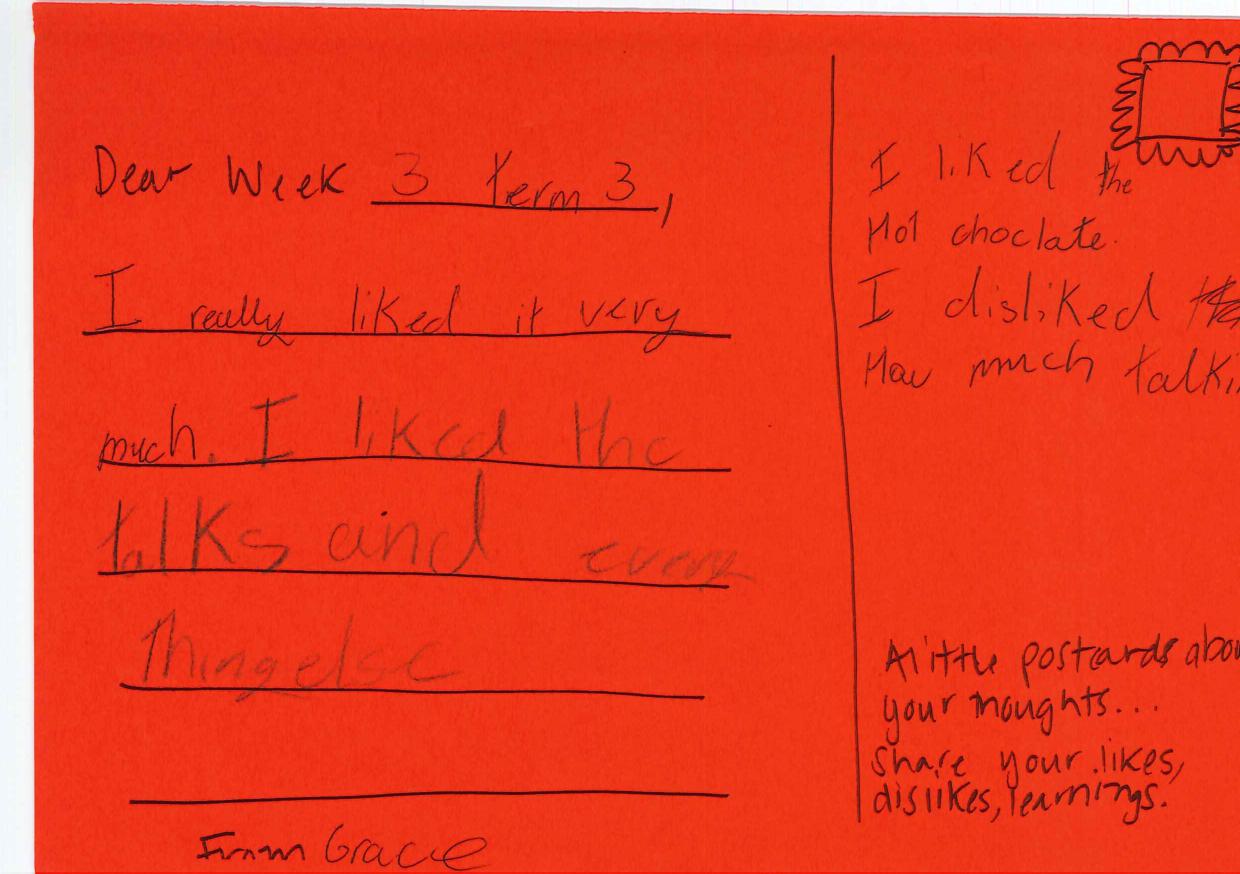 Dear Week 3 term 3,
I really liked it very
much. I liked the
talks and every
thing else
From Grace
I liked the
Hot choclate.
I disliked
How much talkin
A little postcards abou
your thoughts...
share your likes,
dislikes, learnings.